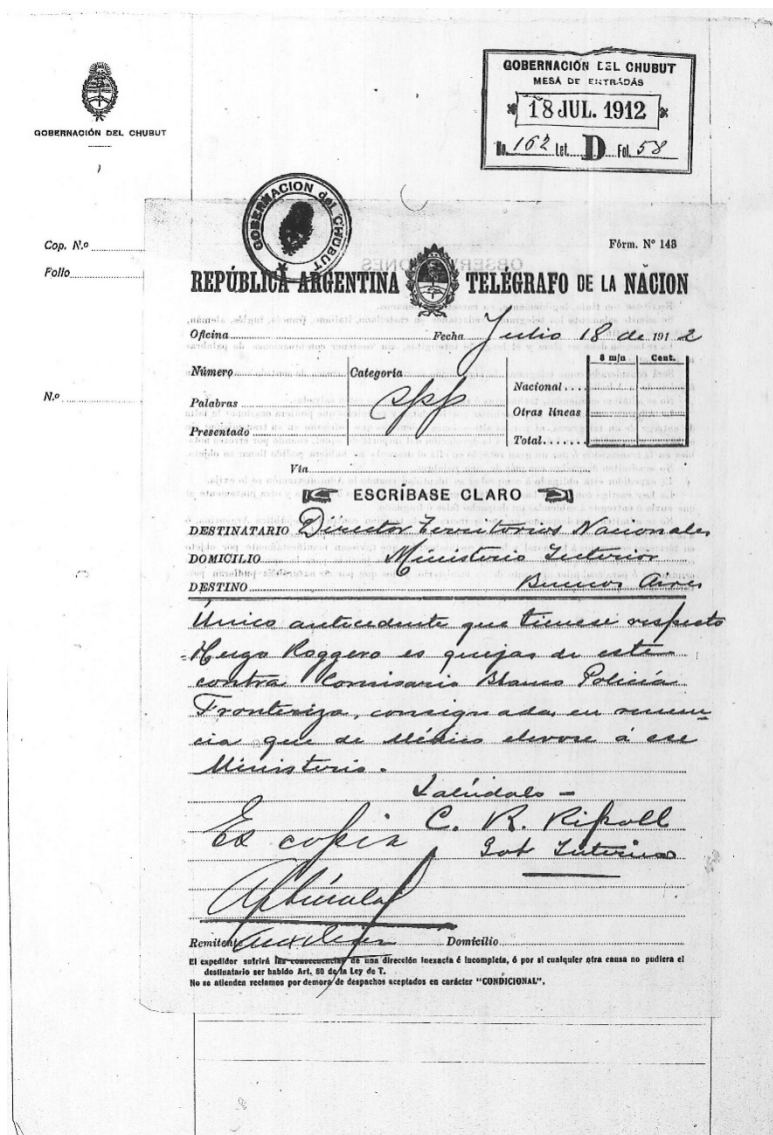 GOBERNACIÓN DEL CHUBUT
GOBERNACIÓN DEL CHUBUT
MESA DE ENTRADAS
18 JUL. 1912
No. 162 Let. D Fol. 58
GOBERNACION del CHUBUT
Cop. N.o
Folio
N.o
Fórm. Nº 143
REPÚBLICA ARGENTINA TELÉGRAFO DE LA NACION
Oficina Fecha Julio 18 de 1912
Número
Palabras
Presentado
Categoría
$ m/n Cent.
Nacional
Otras líneas
Total
Vía
ESCRÍBASE CLARO
DESTINATARIO Director Territorios Nacionales
DOMICILIO Ministerio Interior
DESTINO Buenos Aires
Único antecedente que tienese respecto
Hugo Roggero es quejas de este
contra Comisario Blanco Policía
Fronteriza, consignada en renun-
cia que de Médico elevose á ese
Ministerio.
Salúdalo -
C. R. Ripoll
Gob Interino
Es copia
Remitente Domicilio
El expedidor sufrirá las consecuencias de una dirección inexacta é incompleta, ó por si cualquier otra causa no pudiera el
destinatario ser habido Art. 80 de la Ley de T.
No se atienden reclamos por demora de despachos aceptados en carácter "CONDICIONAL".